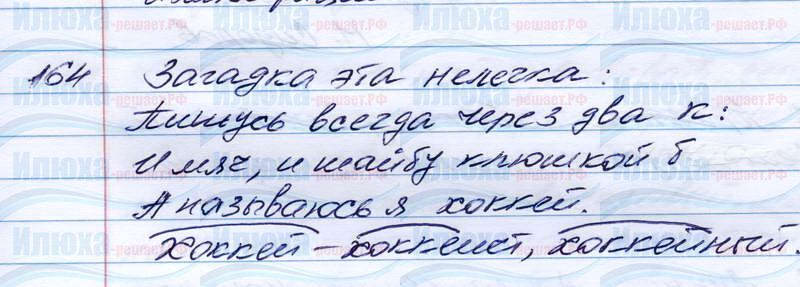 164 Загадка эта нелегка:
Пишусь всегда через два к:
И мяч, и шайбу клюшкой б
А называюсь я хоккей.
хоккей – хоккеист, хоккейный.
Илюха -решает.РФ